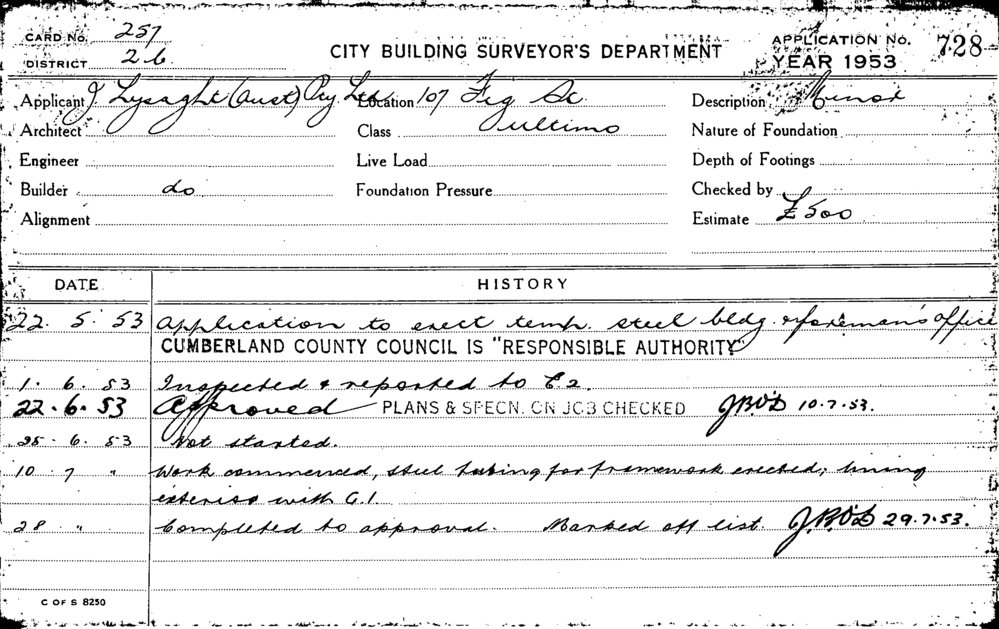 CARD No. 257
DISTRICT 26
CITY BUILDING SURVEYOR'S DEPARTMENT
APPLICATION No. 728
YEAR 1953
Applicant J Lysaght (Aust) Pty Ltd Location 107 Fig St. Description Minor
Architect Class Ultimo Nature of Foundation
Engineer Live Load Depth of Footings
Builder do Foundation Pressure Checked by
Alignment Estimate £500
DATE HISTORY
22. 5. 53 Application to erect temp. steel bldg. & foreman's office
CUMBERLAND COUNTY COUNCIL IS "RESPONSIBLE AUTHORITY"
1. 6. 53 Inspected & reported to E2.
22. 6. 53 Approved PLANS & SPECN. ON JOB CHECKED JBO'D 10.7.53.
25. 6. 53 Not started.
10 7 " Work commenced, steel tubing for framework erected; lining
exterior with G.I.
28 " Completed to approval. Marked off list. JBO'D 29.7.53.
C OF S 8250